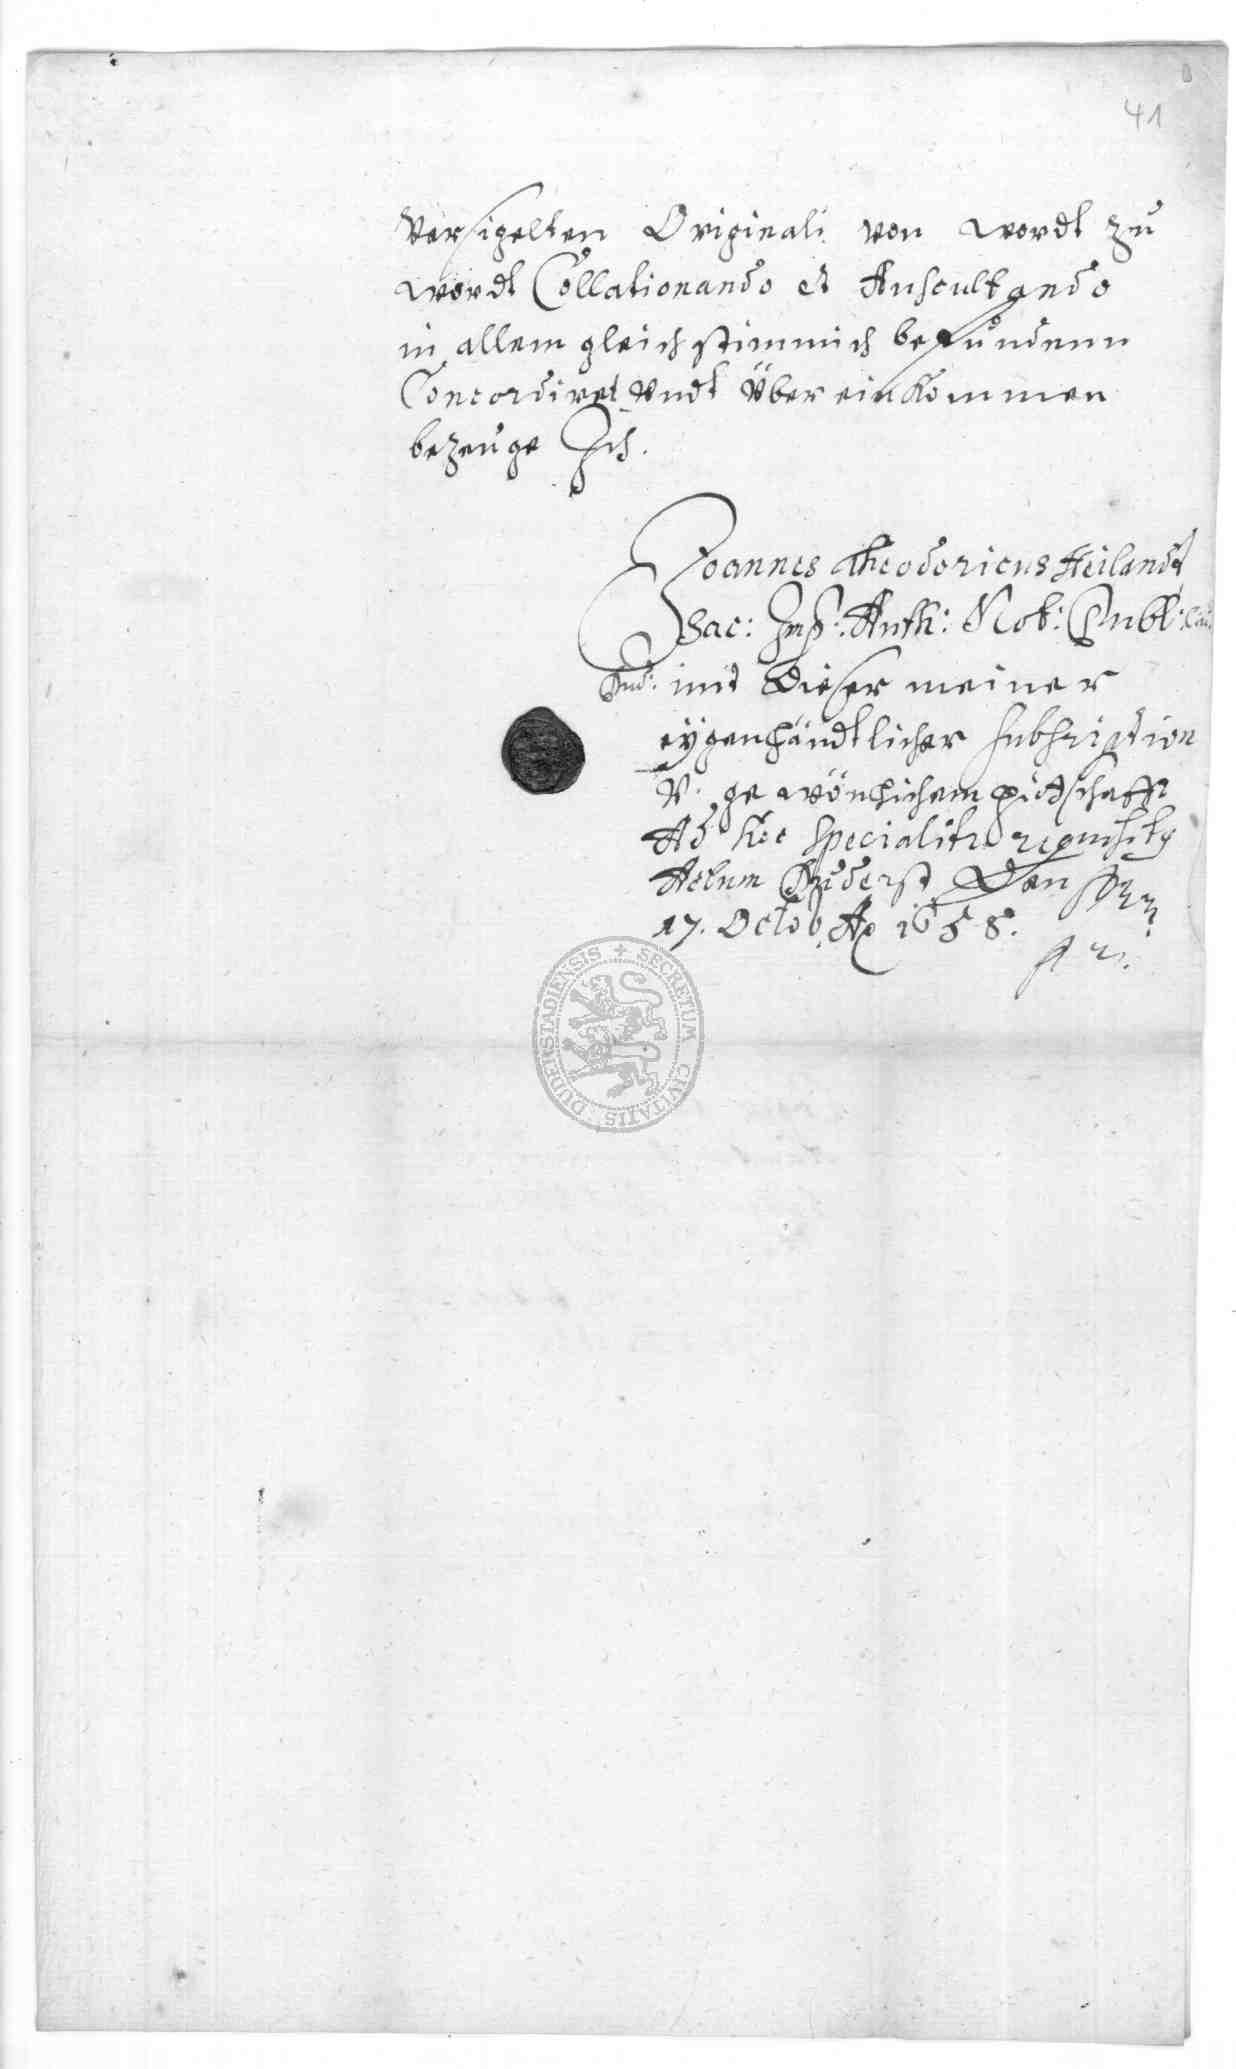 41
versigelten Originali von wordt zu
wordt Collationando et Auscultando
in allem gleichstimmich befundenn
Concordiret Undt Über einkommen
bezeuge Ich.
Joannes Theodoricus Heilandt
Sac: Imp: Auth: Not: Publ:
mit Dieser meiner
eÿgenhändtlicher subscription
V. gewönlichem pidtschafft
Ad hoc specialitr requisitg
Actum Duderst Den
17. Octob. Ao 1658.
SECRETUM CIVITATIS DUDERSTADIENSIS